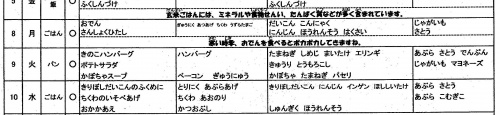 ふくしんづけ
玄米ごはんには、ミネラルや食物せんい、たんぱく質などが多く含まれています。
8 月 ごはん ○ おでん ぎゅうにく あつあげ ちくわ うずらたまご だいこん こんにゃく じゃがいも
さんしょくひたし にんじん ほうれんそう はくさい さとう
寒い時季、おでんを食べるとポカポカしてきますね。
9 火 パン ○ きのこハンバーグ ハンバーグ たまねぎ しめじ まいたけ エリンギ あぶら さとう でんぷん
ポテトサラダ きゅうり とうもろこし じゃがいも マヨネーズ
かぼちゃスープ ベーコン ぎゅうにゅう かぼちゃ たまねぎ パセリ
10 水 ごはん ○ きりぼしだいこんのふくめに とりにく あぶらあげ きりぼしだいこん にんじん インゲン ほししいたけ あぶら さとう
ちくわのいそべあげ ちくわ あおのり あぶら こむぎこ
おかかあえ かつおぶし しゅんぎく ほうれんそう